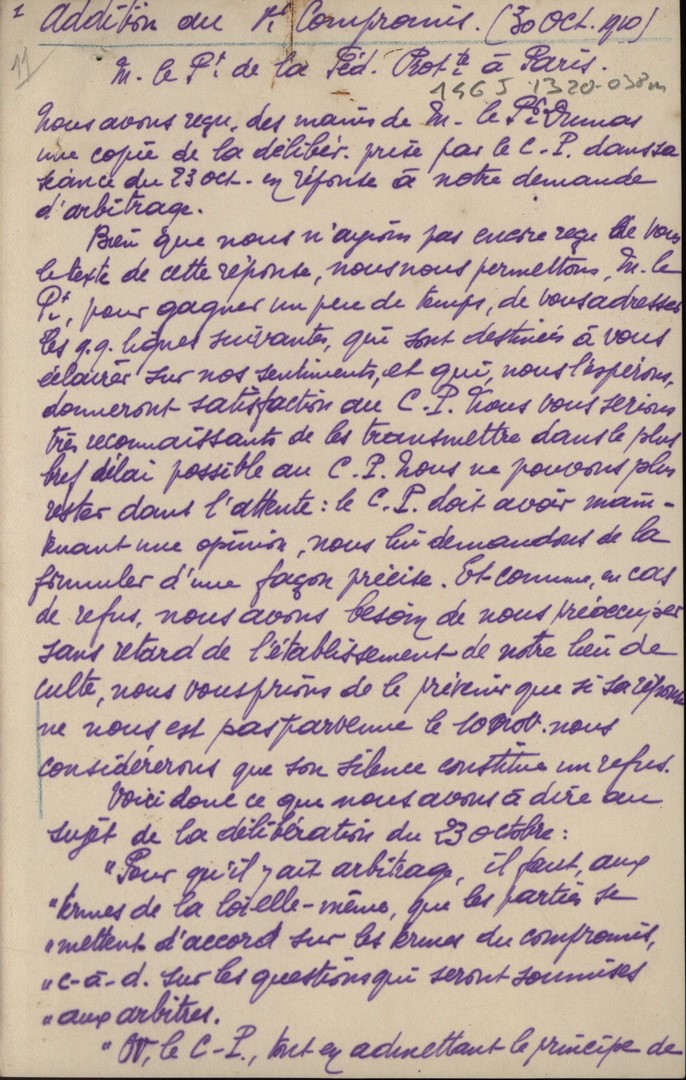 1 Addition au 1er Compromis. (30 Oct. 1910)
11
M. le Pt. de la Féd. Protte à Paris.
146 J 1320-038
Nous avons reçu, des mains de M. le Pr. Dumas
une copie de la délibér. prise par le C.-P. dans sa
séance du 23 oct. en réponse à notre demande
d'arbitrage.
Bien que nous n'ayions pas encore reçu de vous
le texte de cette réponse, nous nous permettons, M. le
Pt, pour gagner un peu de temps, de vous adresser
les q.q. lignes suivantes, qui sont destinées à vous
éclairer sur nos sentiments, et qui, nous l'espérons,
donneront satisfaction au C.P. Nous vous serions
très reconnaissants de les transmettre dans le plus
bref délai possible au C.P. Nous ne pouvons plus
rester dans l'attente : le C.P. doit avoir main-
tenant une opinion, nous lui demandons de la
formuler d'une façon précise. Et comme, en cas
de refus, nous avons besoin de nous préoccuper
sans retard de l'établissement de notre lieu de
culte, nous vous prions de le prévenir que si sa réponse
ne nous est pas parvenue le 10 nov. nous
considérerons que son silence constitue un refus.
Voici donc ce que nous avons à dire au
sujet de la délibération du 23 octobre :
"Pour qu'il y ait arbitrage, il faut, aux
"termes de la loi elle-même, que les parties se
"mettent d'accord sur les termes du compromis,
"c-à-d. sur les questions qui seront soumises
"aux arbitres.
"Or, le C-P., tout en admettant le principe de